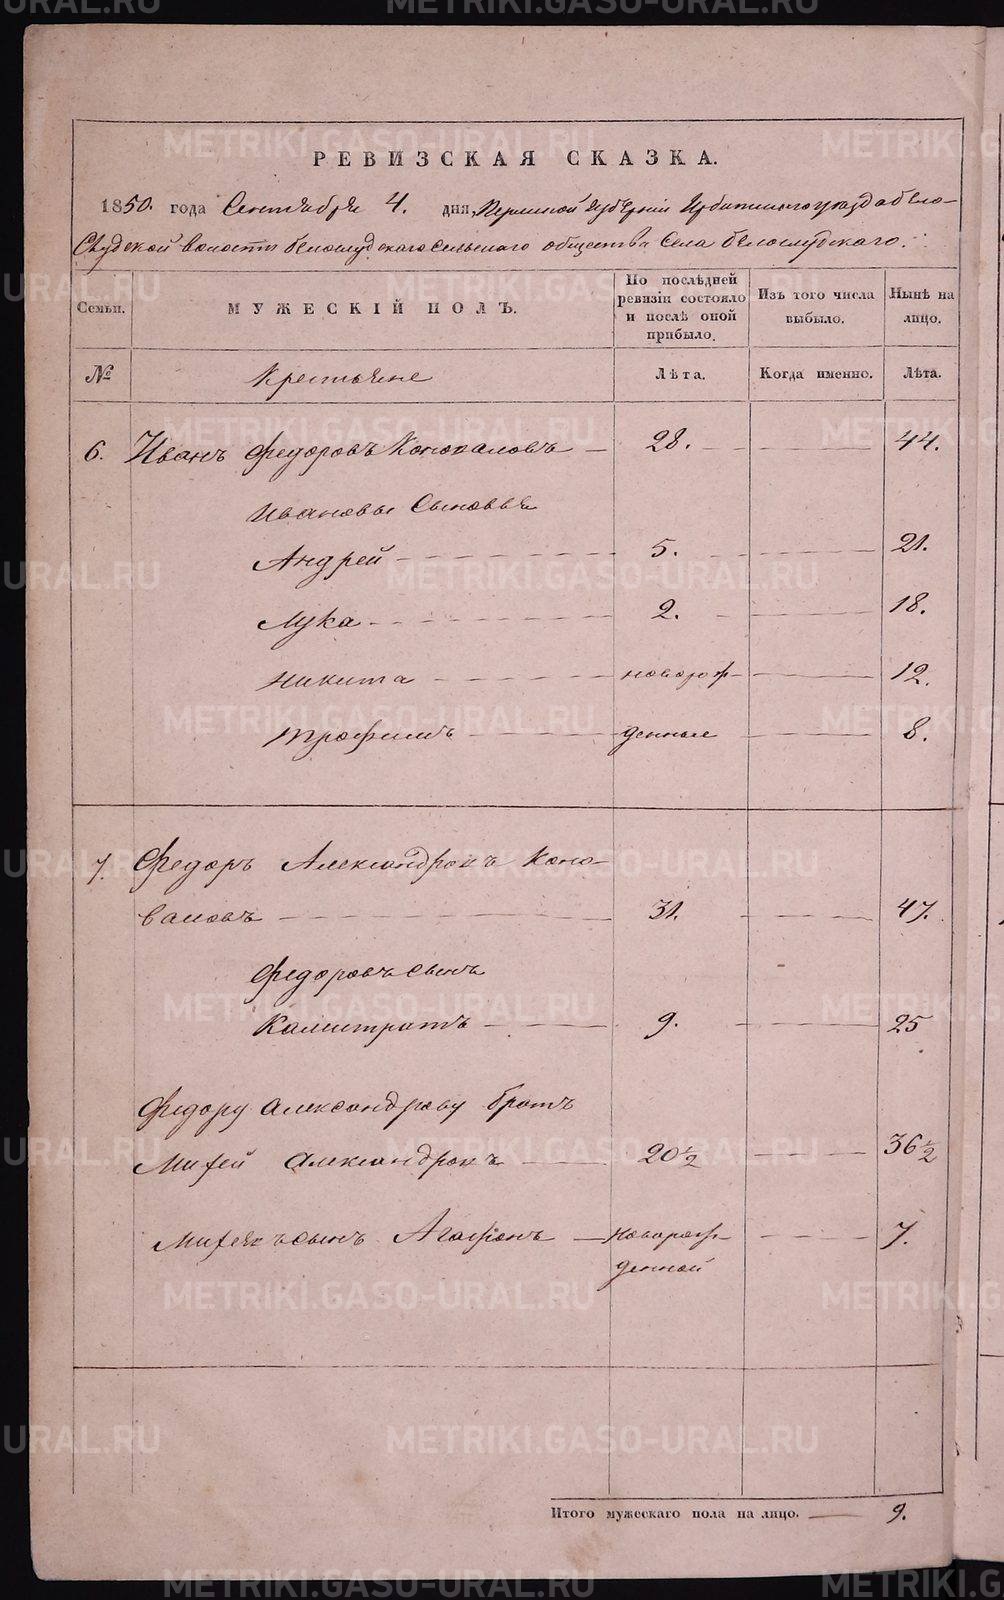 РЕВИЗСКАЯ СКАЗКА.
1850. года Сентября 4. дня, Пермской Губернии Ирбитского уезда Бело-
Слудской волости Белослудского сельского общества Села Белослудского.
Семьи. МУЖЕСКІЙ ПОЛЪ. По послѣдней ревизіи состояло и послѣ оной прибыло. Изъ того числа выбыло. Нынѣ на лицо.
№ Крестьяне Лѣта. Когда именно. Лѣта.
6. Иванъ Федоровъ Коноваловъ 28. 44.
Ивановы Сыновья
Андрей 5. 21.
Лука 2. 18.
Никита новорож- 12.
Трофимъ денные 8.
7. Федоръ Александровъ Коно-
валовъ 31. 47.
Федоровъ сынъ
Калистратъ 9. 25
Федору Александрову братъ
Михей Александровъ 20½ 36½
Михеявъ сынъ Агафонъ новорож- 7.
денной
Итого мужескаго пола на лицо. 9.
METRIKI.GASO-URAL.RU